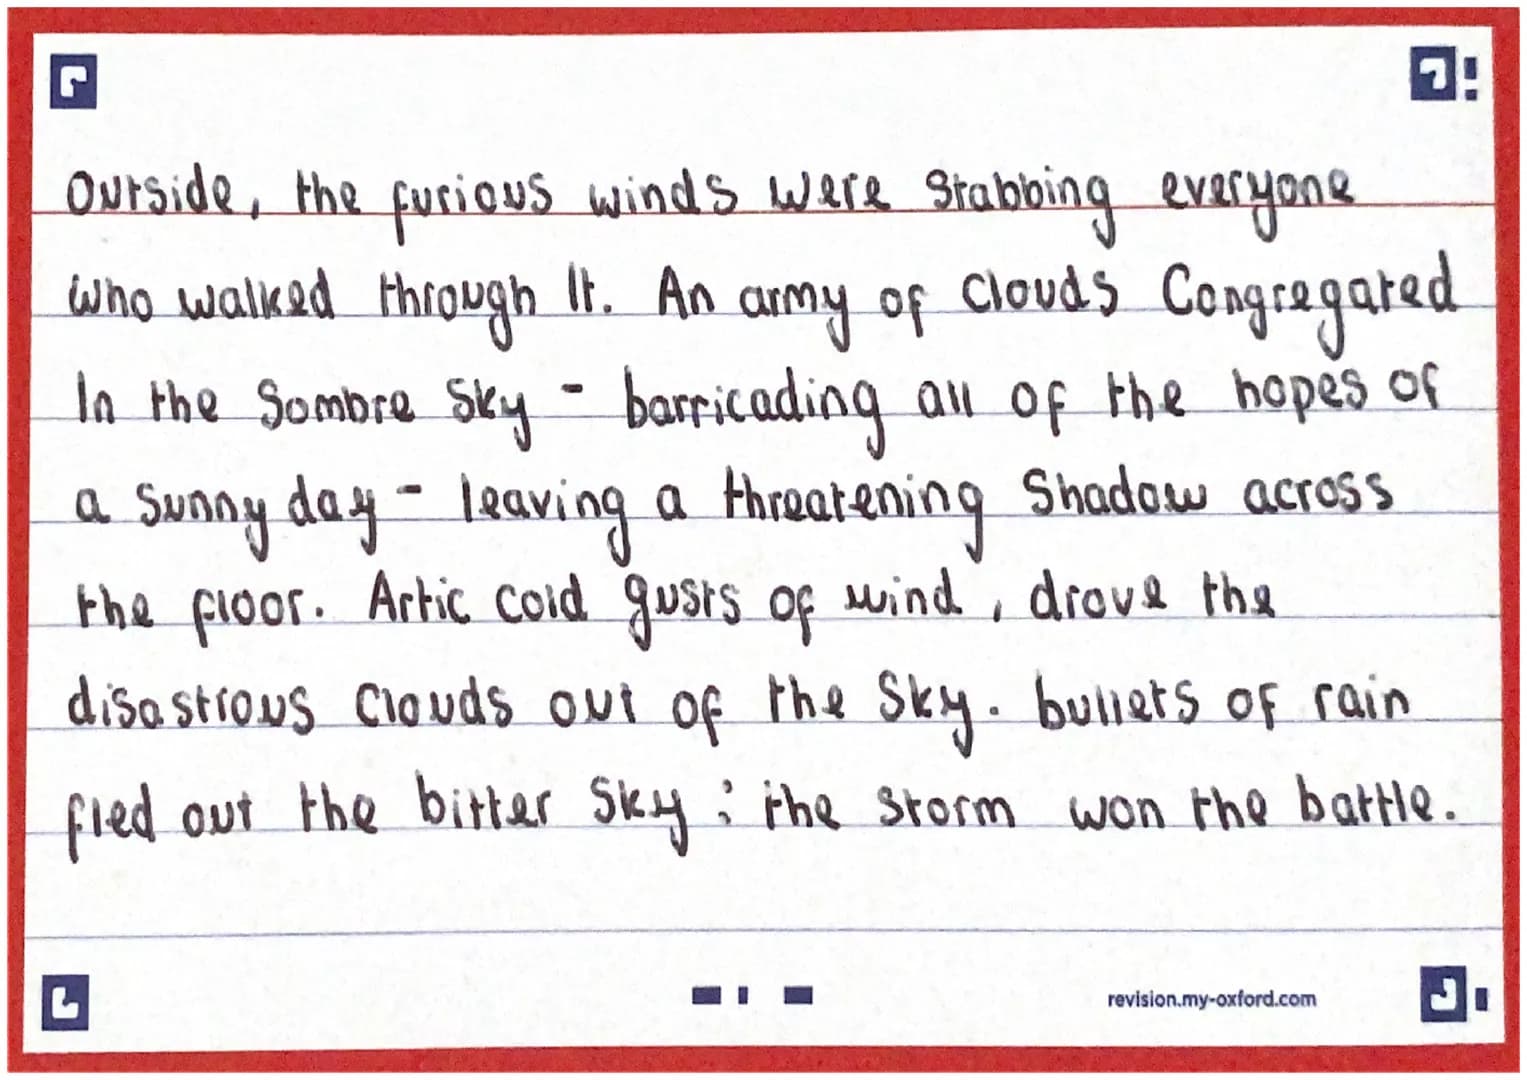 Outside, the furious winds were stabbing everyone
who walked through It. An army of clouds Congregated
In the Sombre Sky - barricading all of the hopes of
a Sunny day - leaving a threatening Shadow across
the floor. Artic cold gusts of wind, drove the
disastrous Clouds out of the Sky. bullets of rain
fled out the bitter Sky; the Storm won the battle.
revision.my-oxford.com